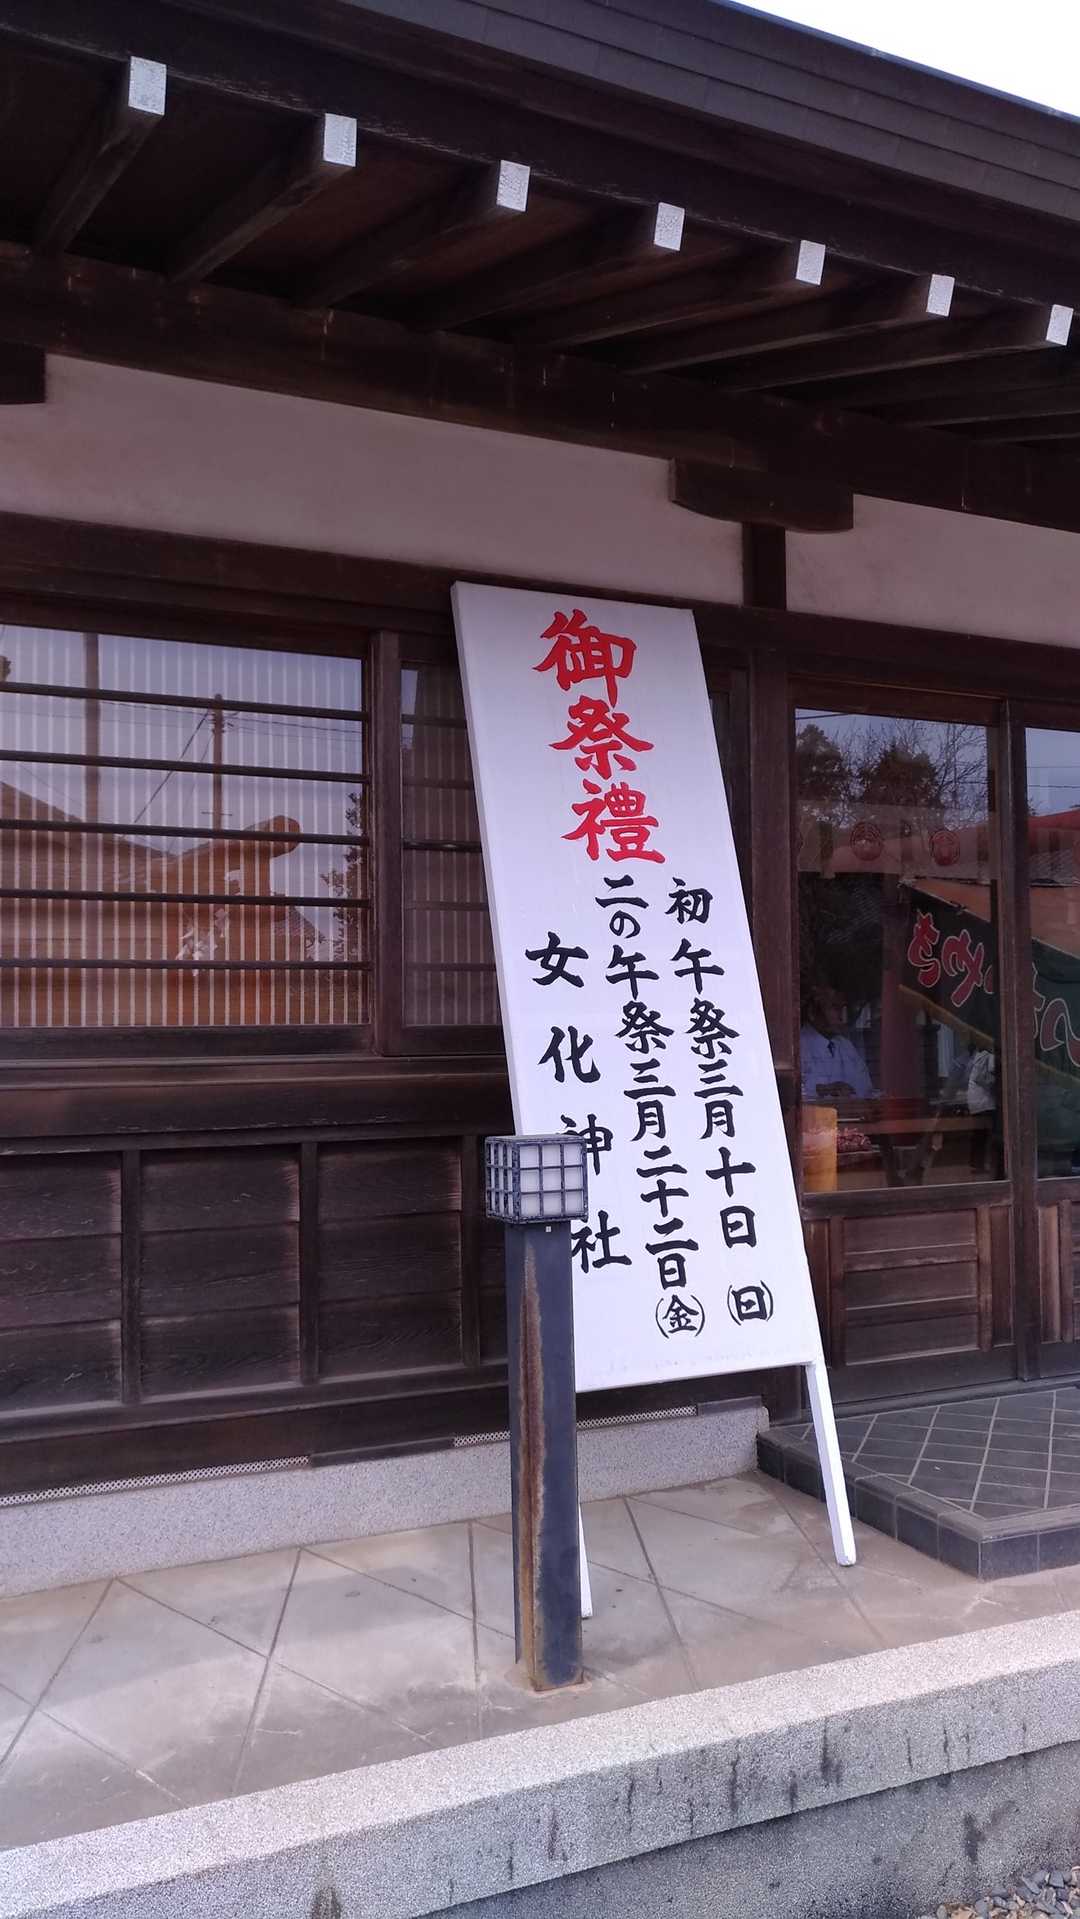 御祭禮
初午祭三月十日(日)
二の午祭三月二十二日(金)
女化神社